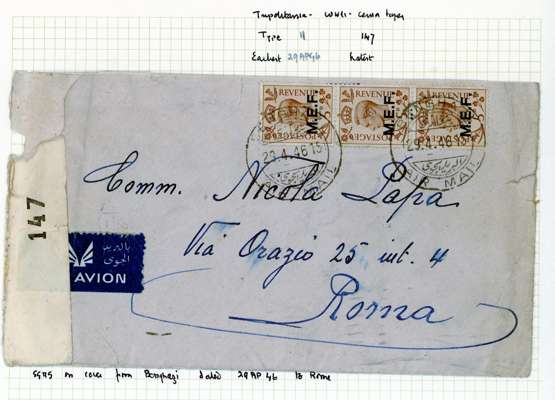 Tripolitania - WWII - Censor tapes
Type II 147
Earliest 29 AP 46 Latest
REVENUE REVENUE REVENUE
M.E.F. M.E.F. M.E.F.
POSTAGE POSTAGE POSTAGE
29.4.46 15 29.4.46 15
AIR MAIL AIR MAIL
147
Comm. Nicola Papa
Via Orazio 25 int. 4
Roma
بالبريد
الجوي
AVION
on cover from Benghazi dated 29 AP 46 to Rome